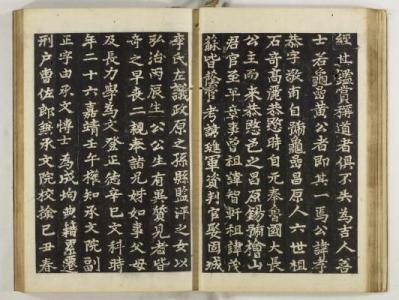 經世鑑賞稱道者俱不失為吉人善
士若龜嵒黃公者即其一焉公諱孝
恭字敬甫自號龜嵒昌原人六世祖
石奇高麗恭愍時自元奉魯國大長
公主而來恭愍邑之昌原錫號檜山
君官至平章事曾祖諱智軒祖諱茂
皆 考諱継軍資判官娶固城
李氏左議政原之孫縣監泙之女以
弘治丙辰生公公生有異質見者皆
奇之早丧二親奉諸兄姉如事父母
及長力學為文登正德辛巳文科時
年二十六嘉靖壬午權知承文院副
正字由承文博士為成均典籍累遷
刑戶曹佐郎兼承文院校撿己丑春